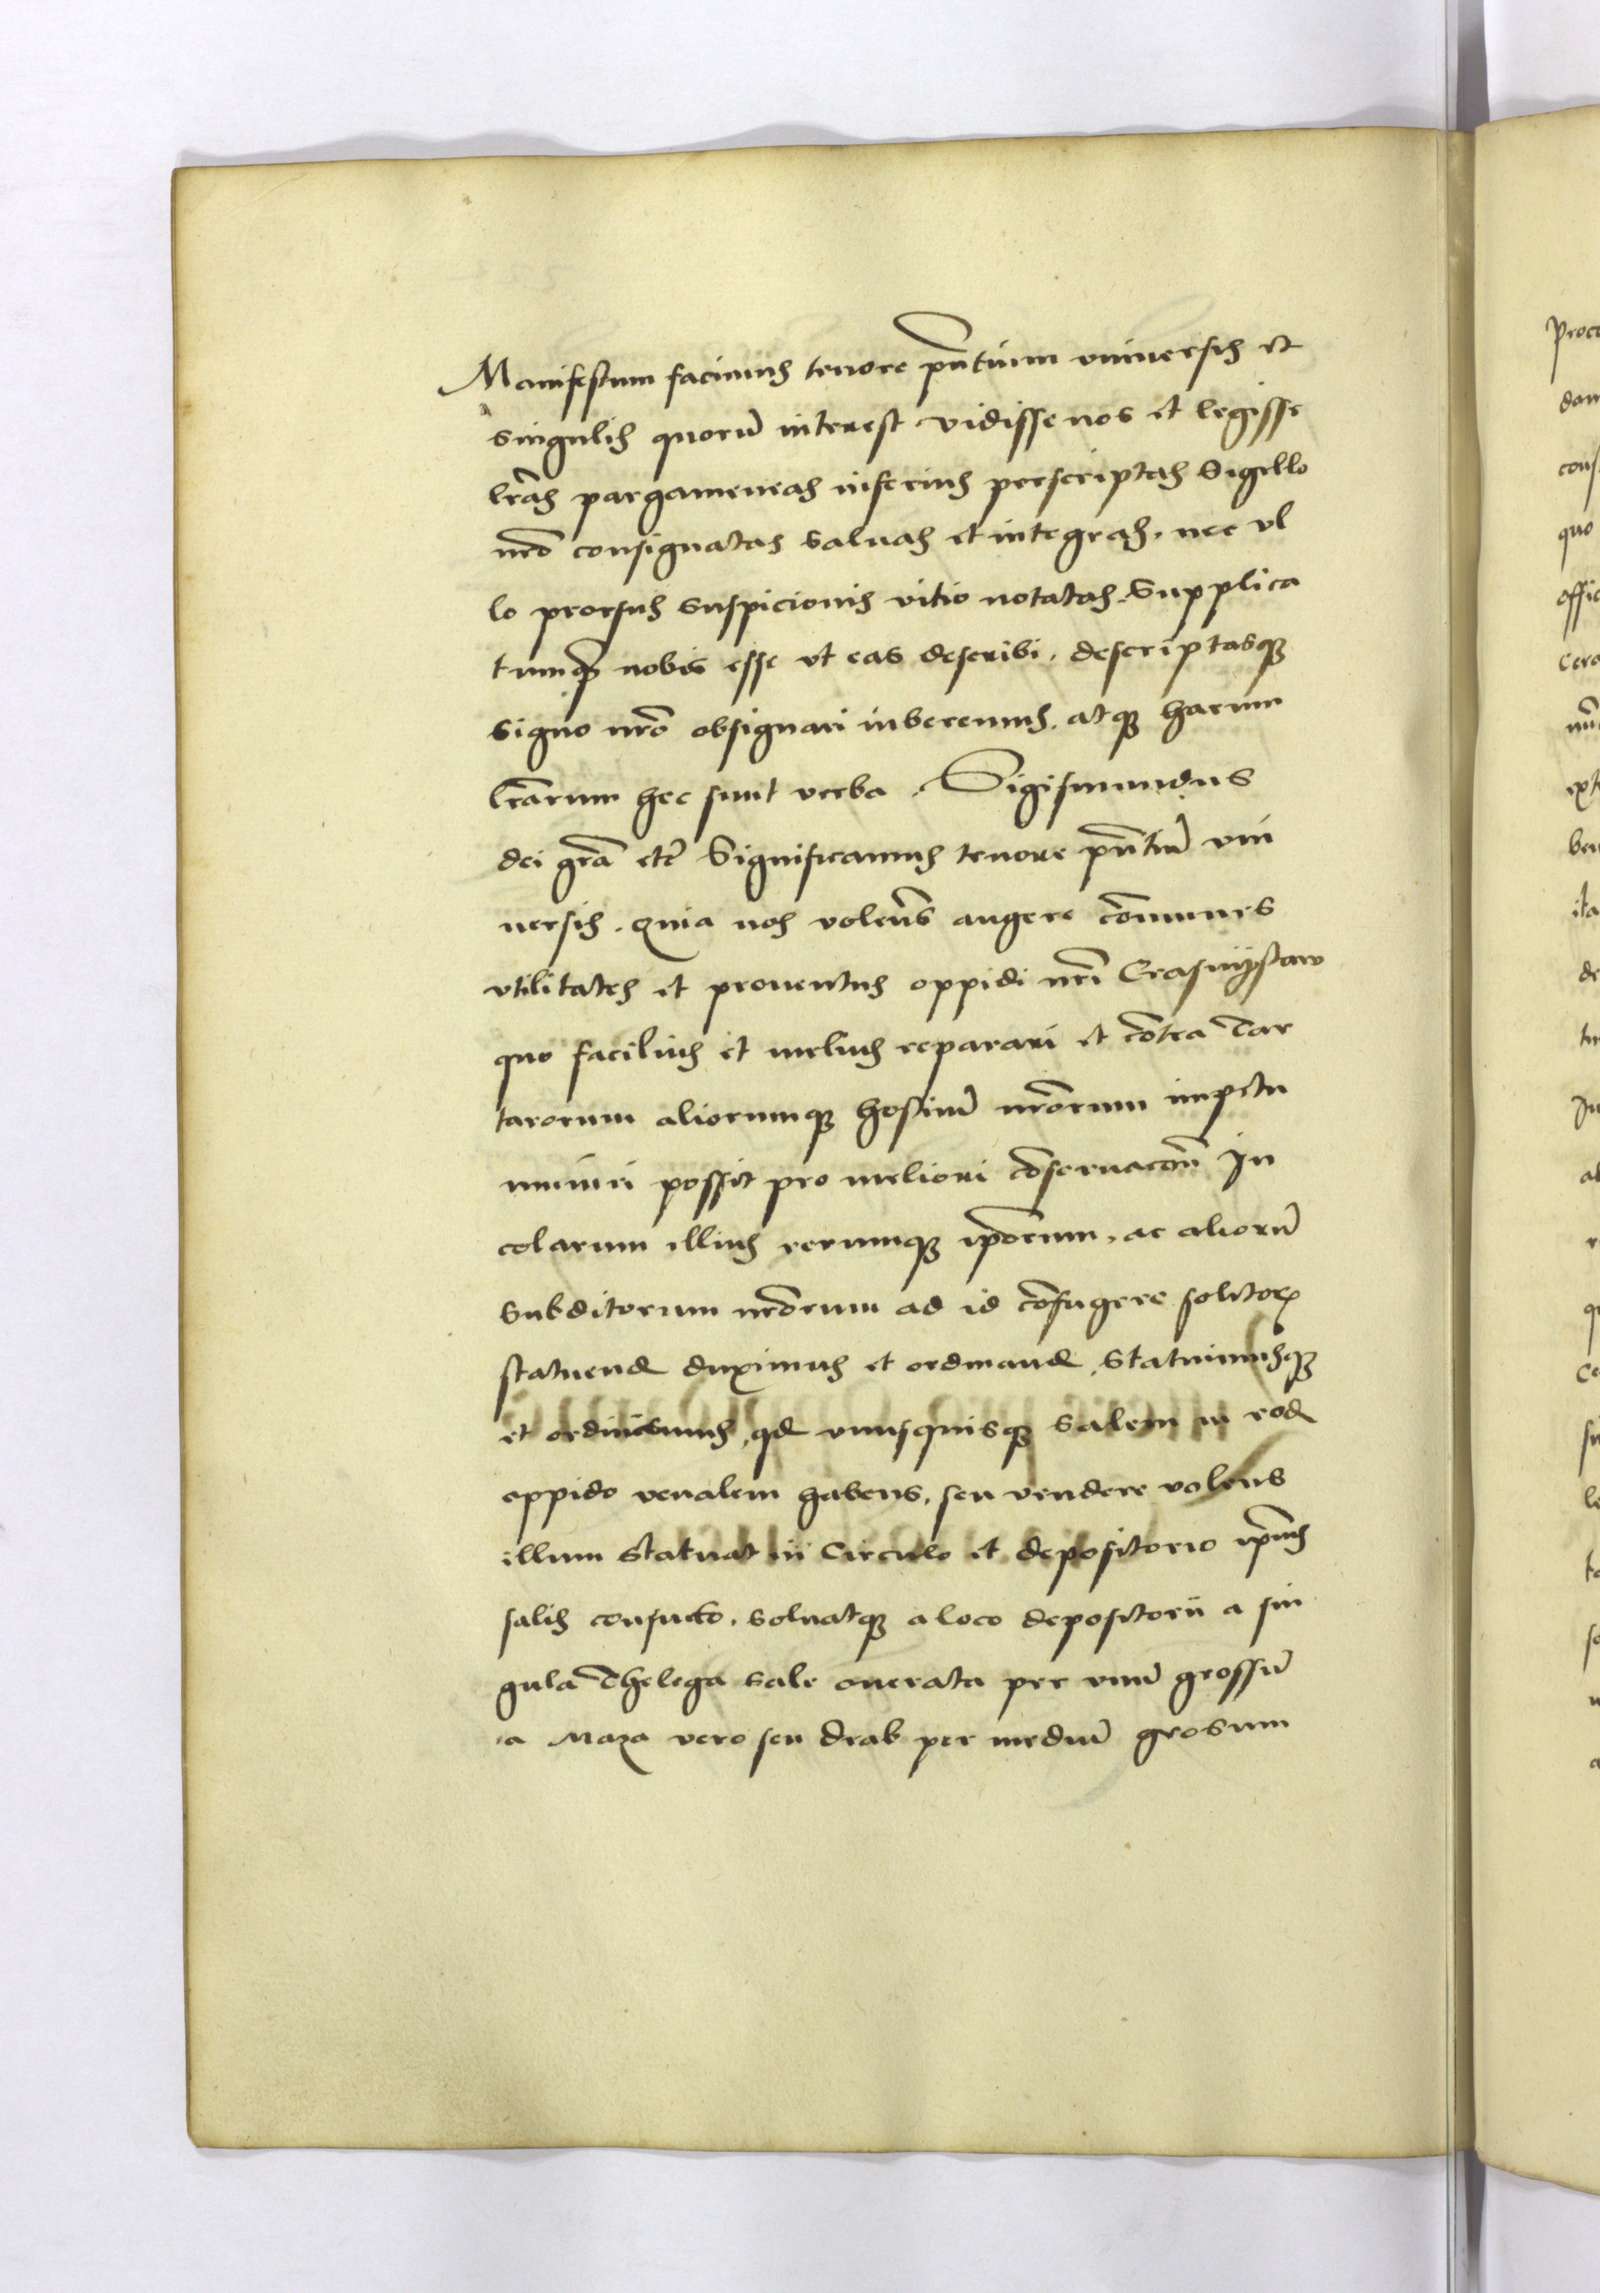 Manifestum facimus tenore pñtium vniuersis et
singulis quorũ interest vidisse nos et legisse
lr̃as pargameneas inferius perscriptas Sigillo
nr̃o consignatas saluas et integras. nec vl
lo prorsus suspicionis vitio notatas. Supplica
tumqꝫ nobis esse vt eas describi. descriptasqꝫ
signo nr̃o obsignari iuberemus. atqꝫ harum
lr̃arum hec sunt verba. Sigismundus
dei gr̃a etc̃ Significamus tenore pñtiũ vni
uersis. Quia nos volen̄s augere cõmunes
vtilitates et prouentus oppidi nr̃i Crasnÿstaw
quo facilius et melius reparari et cõtra Tar
tarorum aliorumqꝫ hostiũ nr̃orum impetu
muniri possit pro meliori cõseruacõe In
colarum illius rerumqꝫ ip̃orum. ac aliorũ
subditorum nr̃orum ad id cõfugere solitoꝝ
statuend duximus et ordinand. Statuimusqꝫ
et ordinamus. qd vnusquisqꝫ salem in eod
oppido venalem habens. seu vendere volens
illum statuat in Circulo et depositorio ip̃ius
salis consueto. soluatqꝫ a loco depositorii a sin
gula Thelega sale onerata per vnũ grossũ
a Maza vero seu drab per mediũ grosum